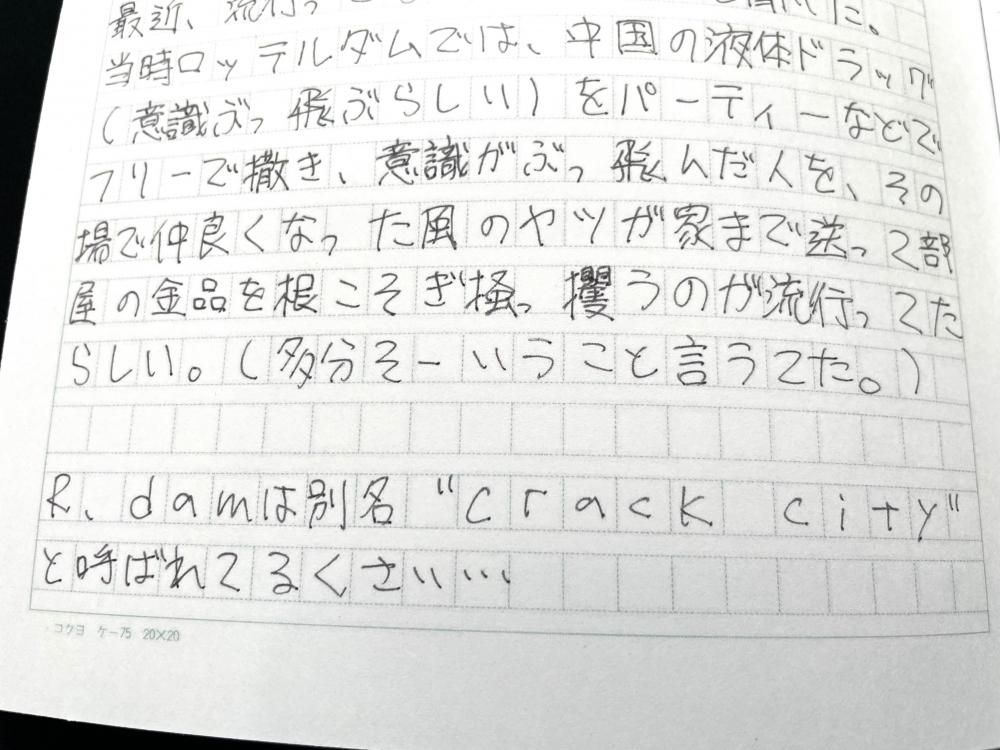 最近、流行っ
当時ロッテルダムでは、中国の液体ドラッグ
(意識ぶっ飛ぶらしい)をパーティーなどで
フリーで撒き、意識がぶっ飛んだ人を、その
場で仲良くなった風のヤツが家まで送って部
屋の金品を根こそぎ掻っ攫うのが流行ってた
らしい。(多分そーいうこと言うてた。)
R、damは別名"crack city"
と呼ばれてるくさい…
コクヨ ケー75 20×20